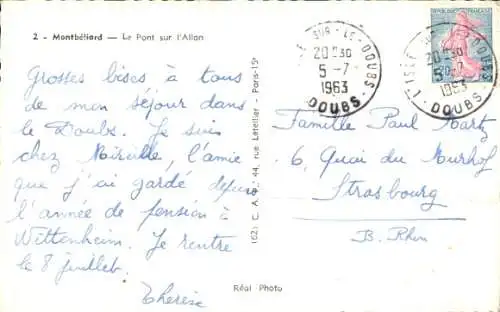 2 - Montbéliard — Le Pont sur l'Allan
Grosses bises à tous
de mon séjour dans
le Doubs. Je suis
chez Mireille, l'amie
que j'ai gardé depuis
l'année de pension à
Wittenheim. Je rentre
le 8 juillet.
Thérèse
(62) C. A. P. 44, rue Letellier - Paris-15e
Réal-Photo
L'ISLE SUR-LE-DOUBS
20H30
5-7
1963
DOUBS
L'ISLE SUR-LE-DOUBS
20H30
5-7
1963
DOUBS
REPUBLIQUE FRANÇAISE
Famille Paul Martz
6, Quai du Murhof
Strasbourg
B. Rhin